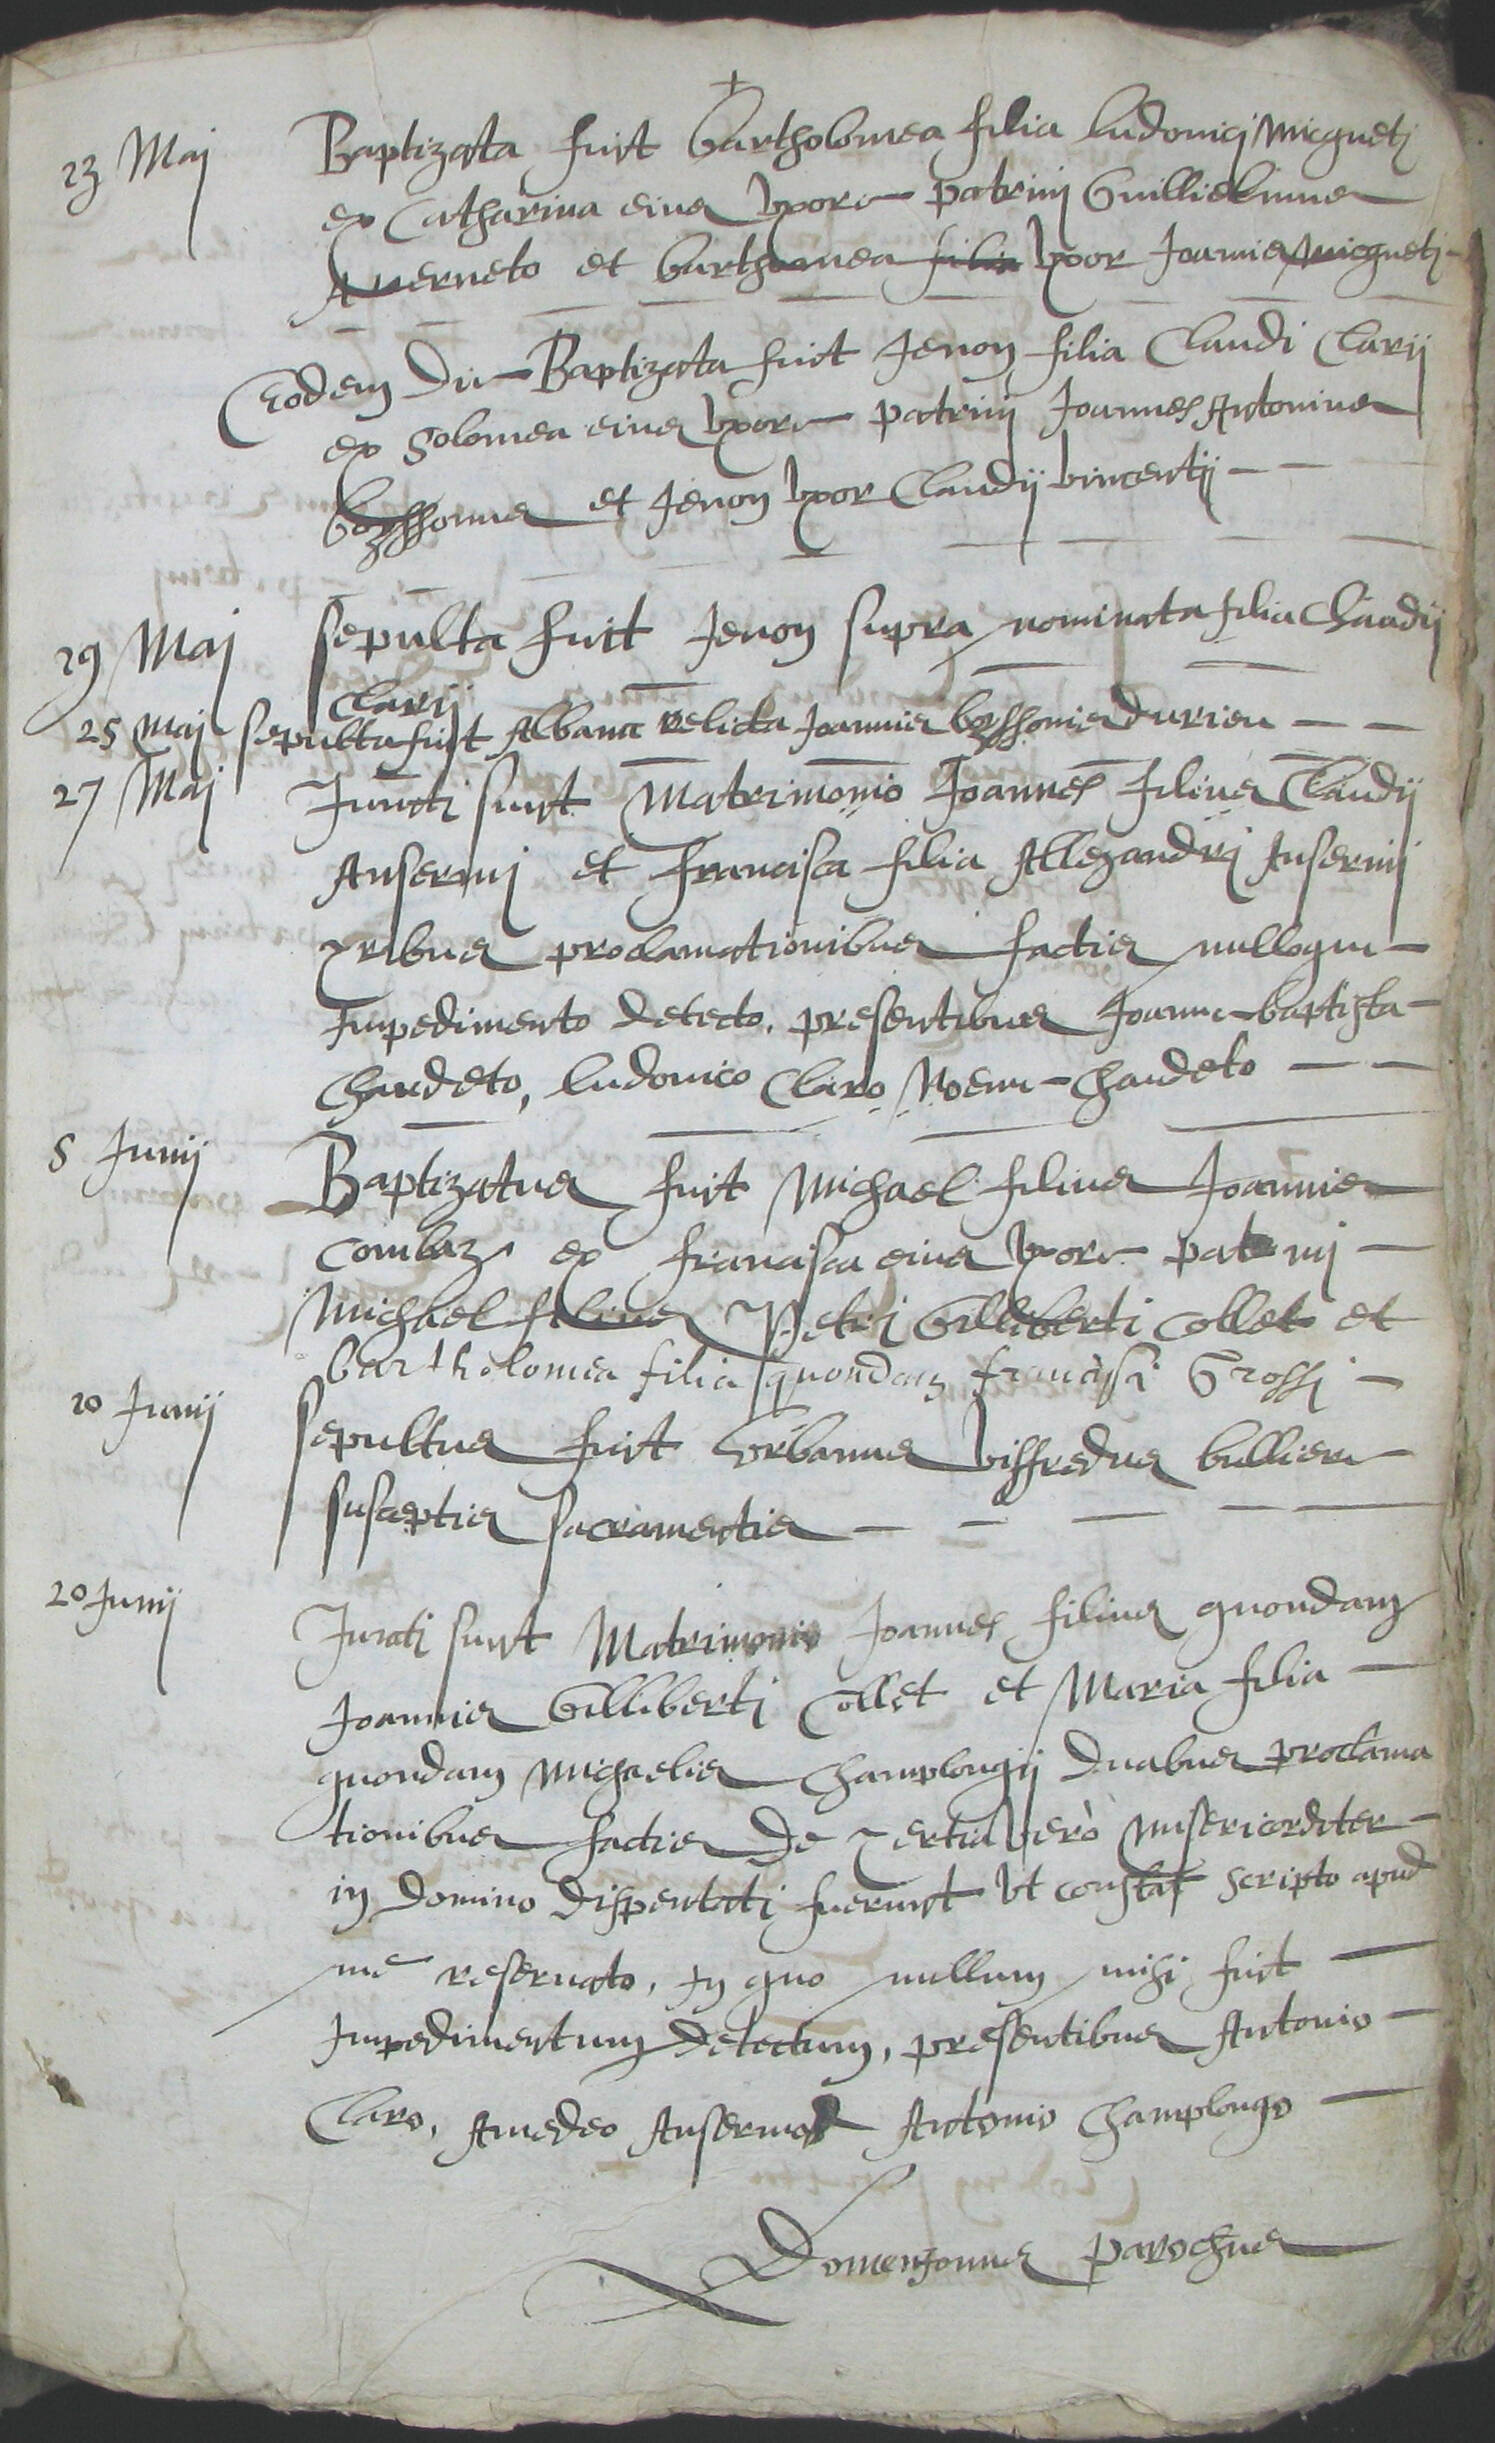 +
23 Maj Baptizata fuit bartholomea filia ludovicj Micgnetj
ex Catharina eius uxore patrinj Guillielmus
A verneto et barthomea filia uxor Joannis micgnetj
Eodem die Baptizata fuit Jenon filia Claudi Clarij
ex solomea eius uxore patrinj Joannes Antonius
et Jenon uxor Claudij vincentij
29 Maj sepulta fuit Jenon supra nominata filia Claudij
Clarij
25 maj sepulta fuit Albana relicta Joannis durieu
27 Maj Juncti sunt Matrimonio Joannes filius Claudij
Ansermj et francisca filia Allexandrj Ansermj
tribus proclamationibus factis nulloque
Impedimento detecto, presentibus Joanne baptista
Chaudeto, ludovico Claro, Noemi Chaudeto
5 Junij Baptizatus fuit Michael filius Joannis
Combaz ex francisca eius uxore patrinj
Michael filius Petrj Gilliberti Collet et
bartholomea filia quondam francisci Grossj
20 Junij sepultus fuit Urbanus viffredus bulliere
susceptis sacramentis
20 Junij Juncti sunt Matrimonio Joannes filius quondam
Joannis Gillibertj Collet et Maria filia
quondam Michaelis Champlongij duabus proclama
tionibus factis de tertia verò misericorditer
in domino dispentati fuerunt ut constat scripto apud
me reservato, in quo nullum mihi fuit
Impedimentum detectum, presentibus Antonio
Claro, Amedeo Ansermod Antonio Champlongo
Domenjonus parochus